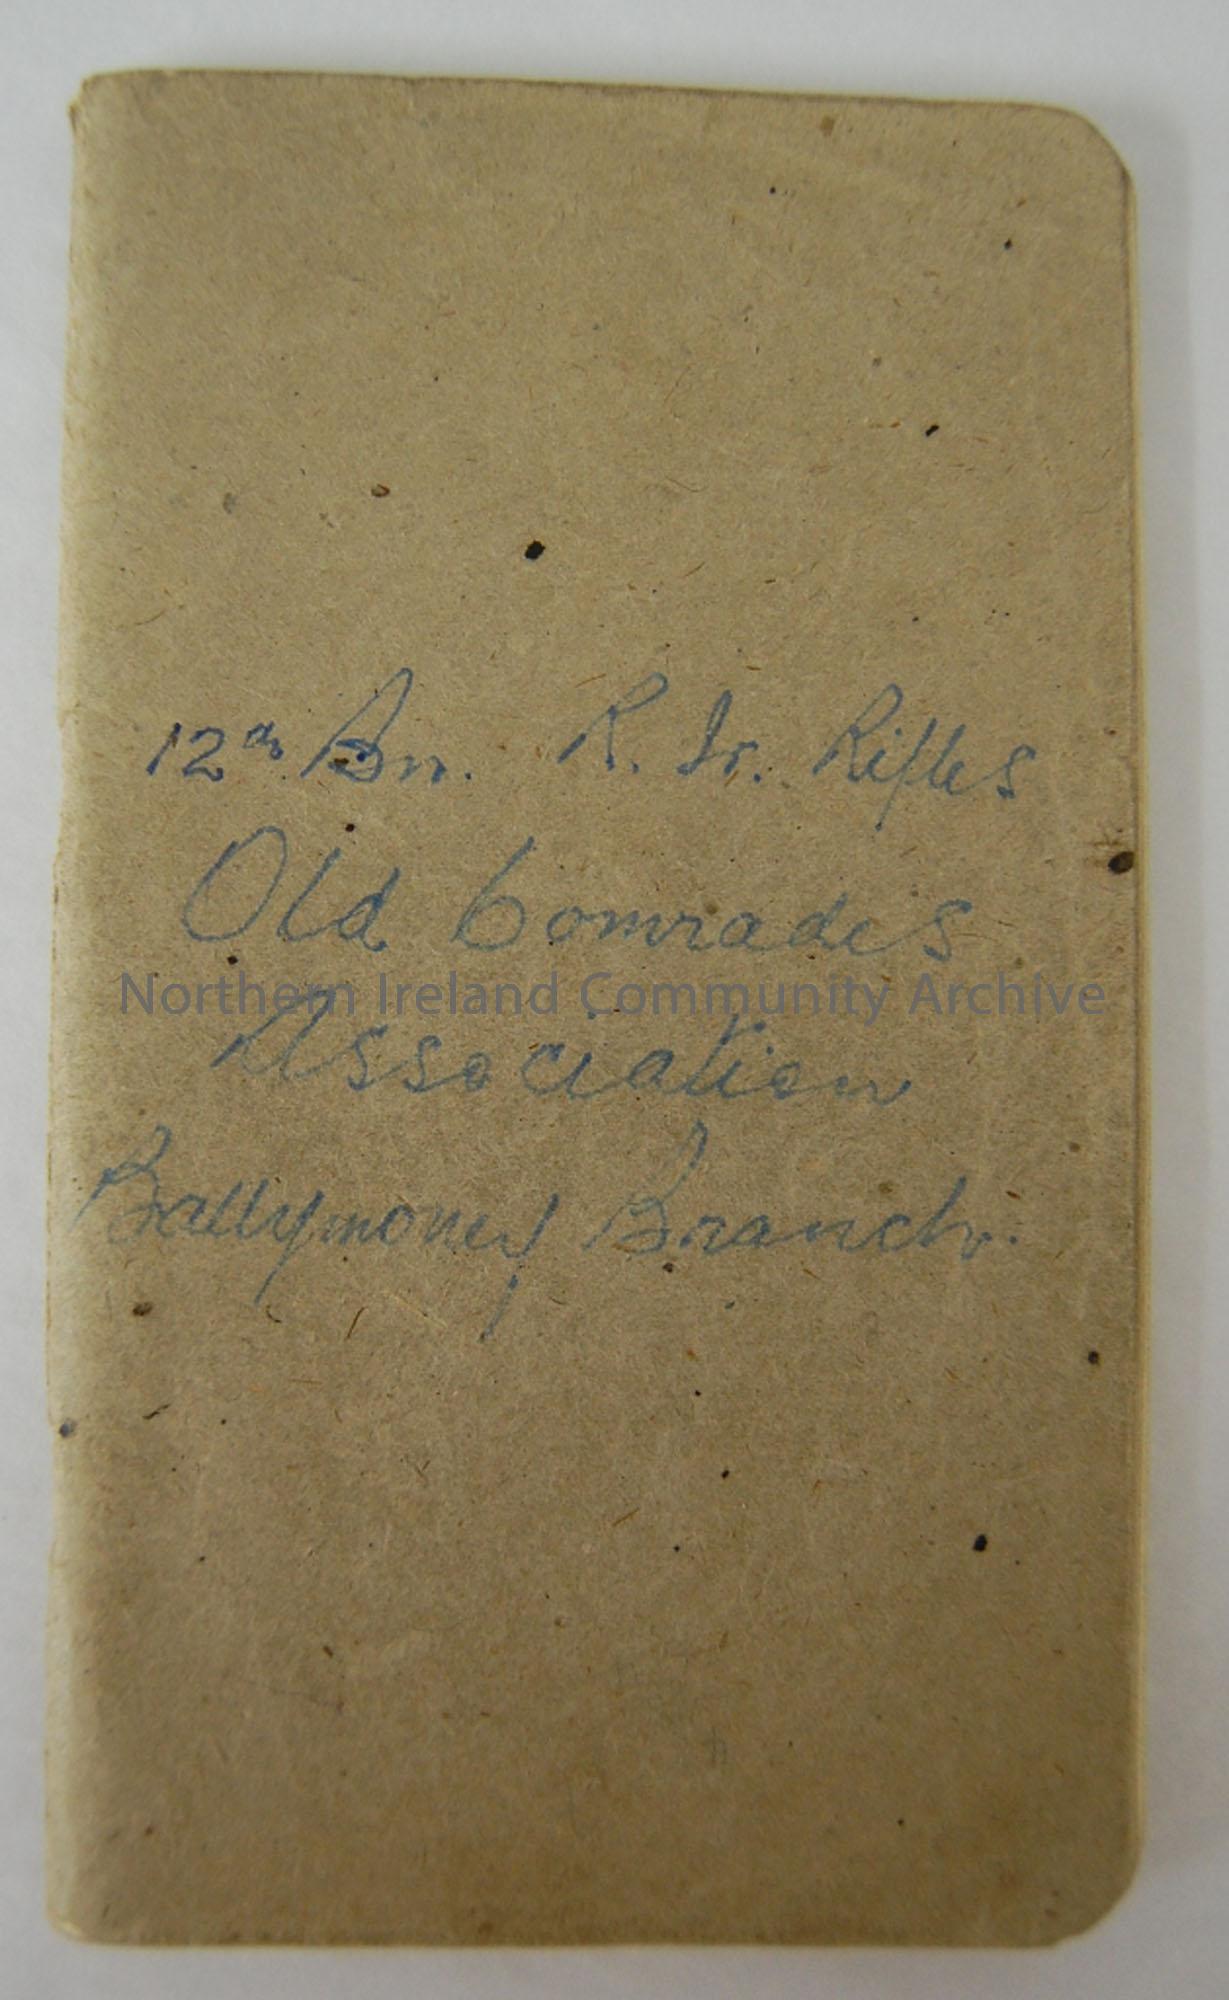 12th Bn. R. Ir. Rifles
Old Comrades
Northern Ireland Community Archive
Association
Ballymoney Branch.